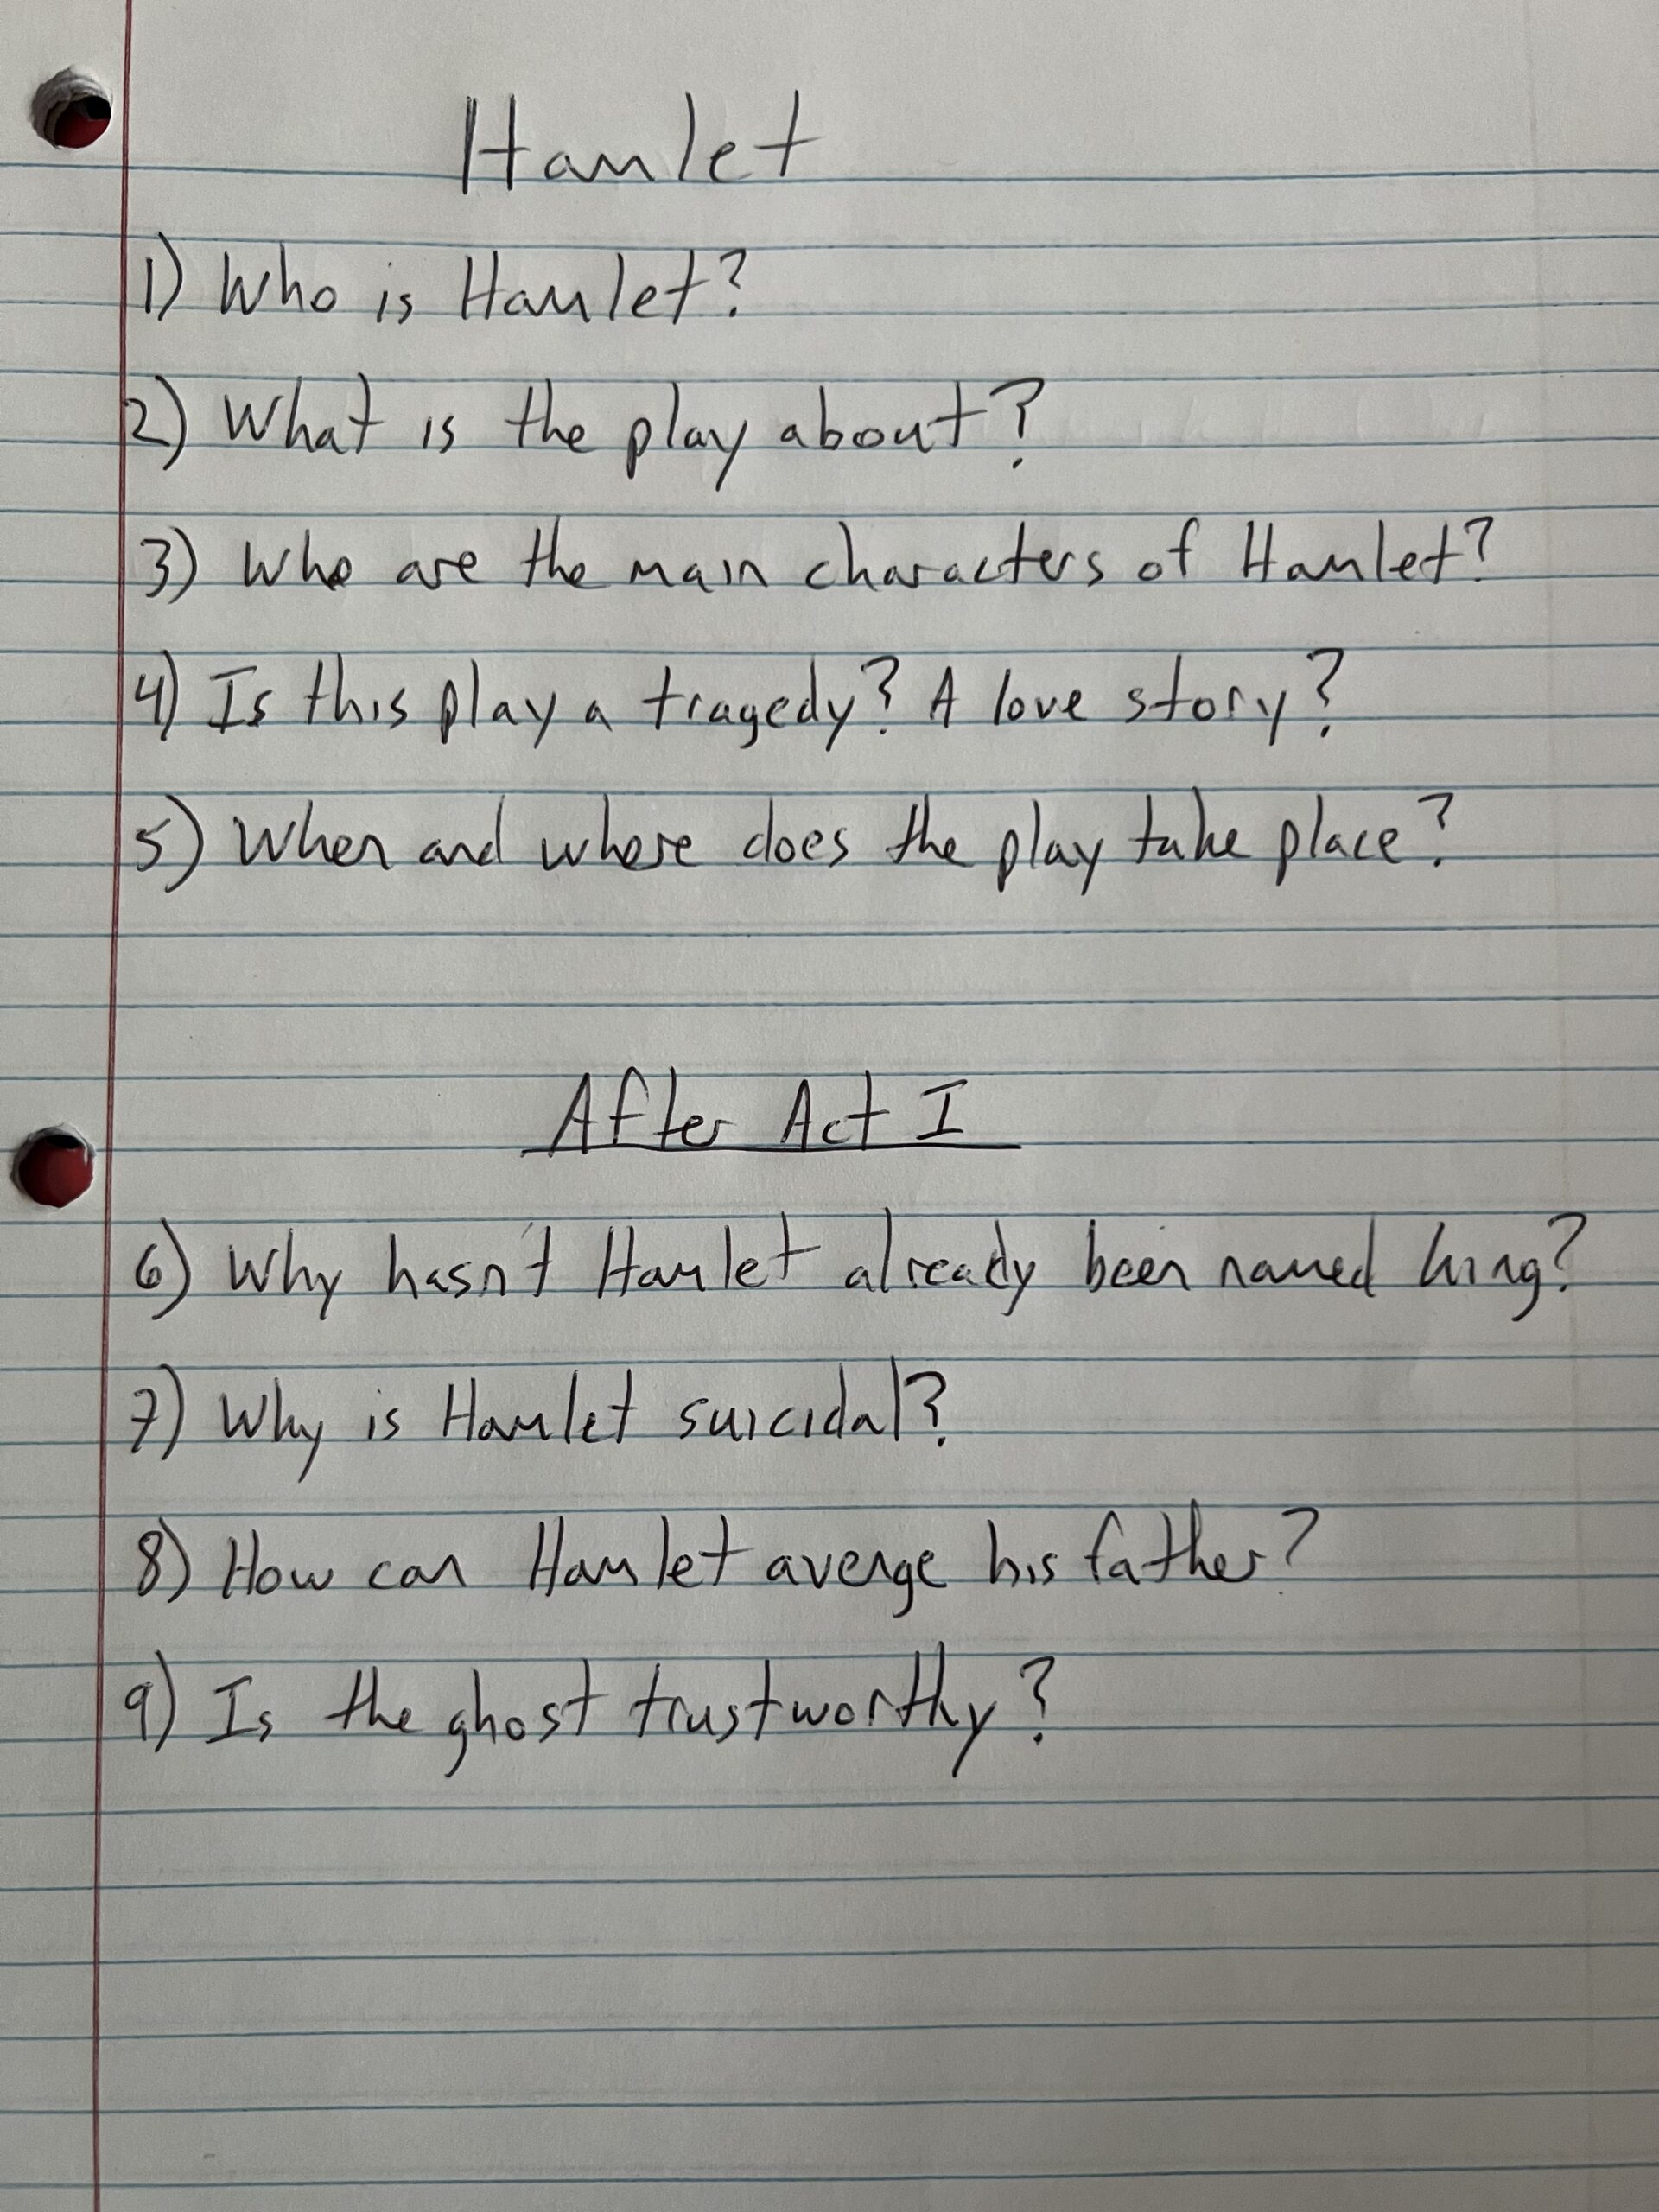 Hamlet
1) Who is Hamlet?
2) What is the play about?
3) Who are the main characters of Hamlet?
4) Is this play a tragedy? A love story?
5) When and where does the play take place?
After Act I
6) Why hasn't Hamlet already been named king?
7) Why is Hamlet suicidal?
8) How can Hamlet avenge his father?
9) Is the ghost trustworthy?